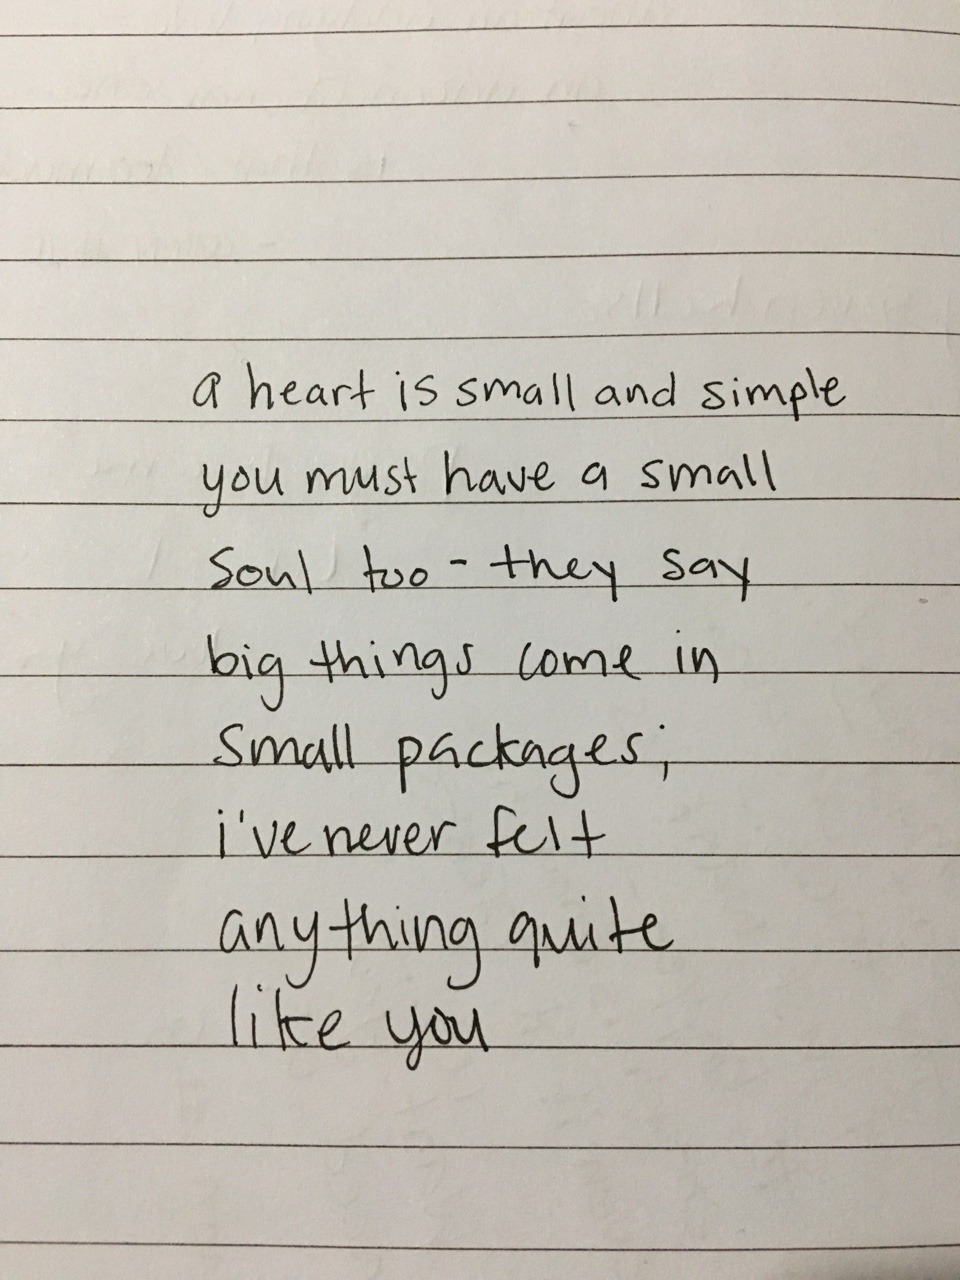 a heart is small and simple
you must have a small
soul too - they say
big things come in
small packages;
i've never felt
anything quite
like you